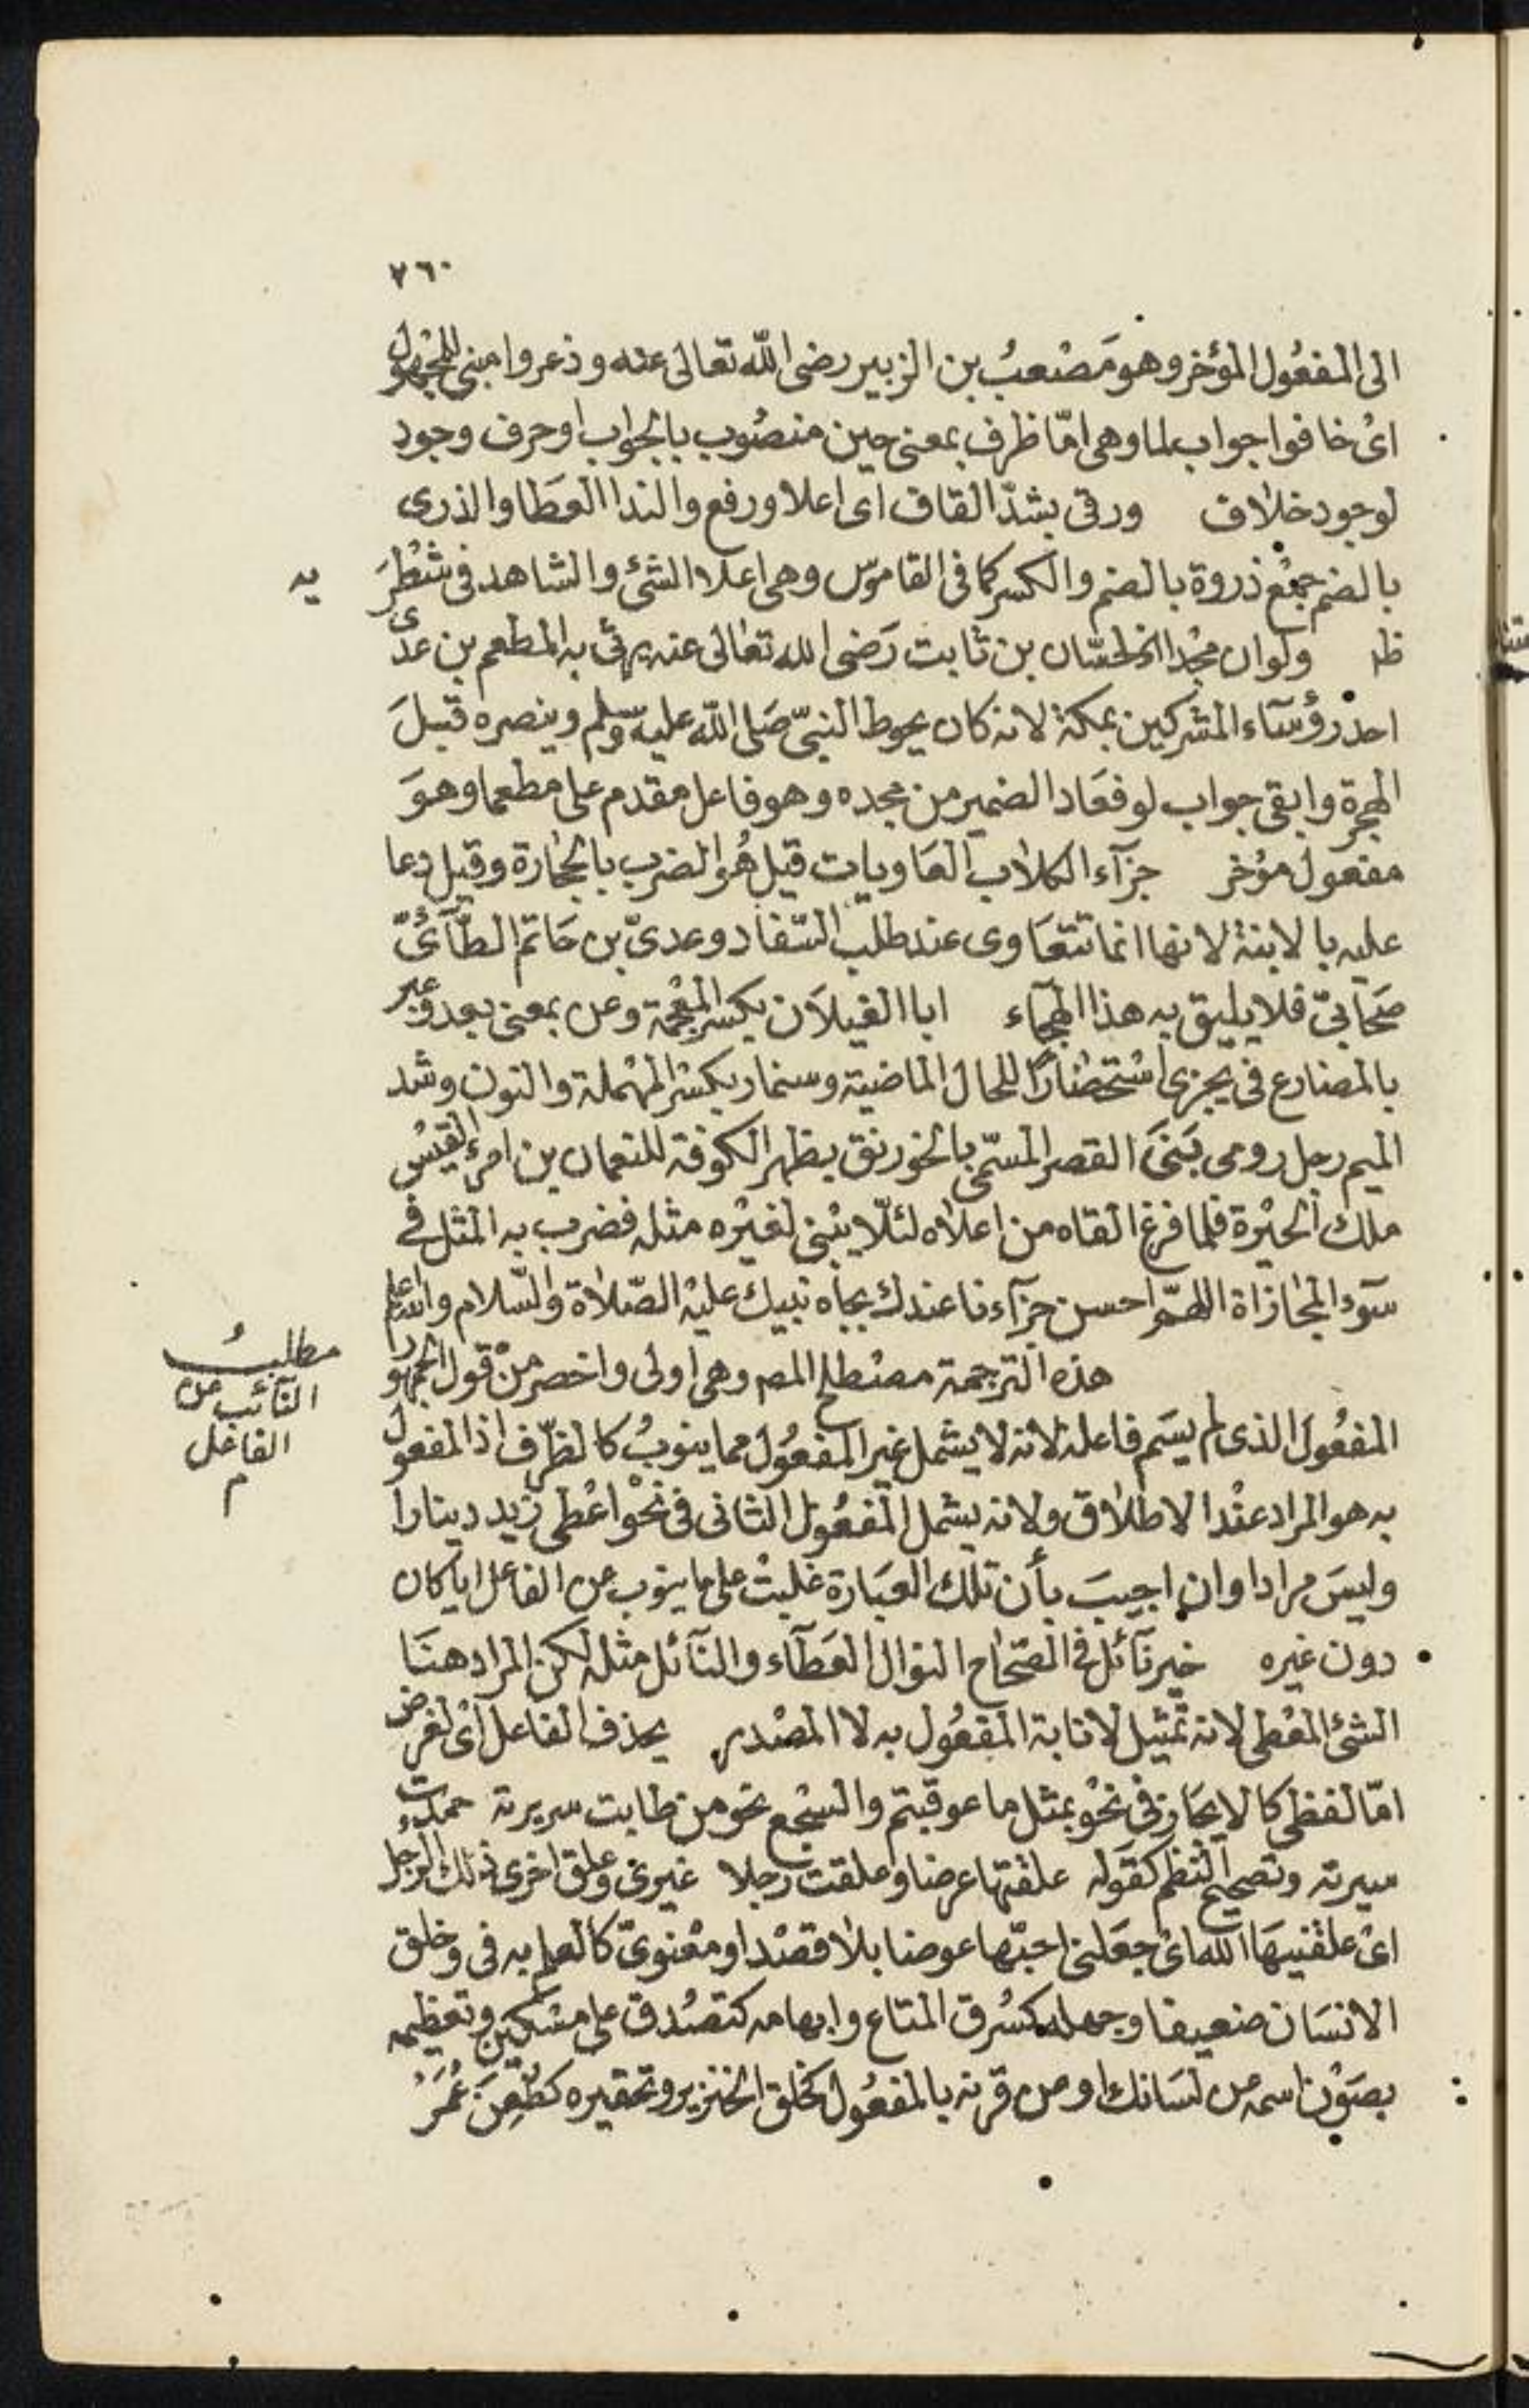 ٧٦٠
الى المفعُول المؤخر وهو مَصْعبُ بن الزبير رضى الله تعالى عنه وذعروا مبنى للمجهول
اىْ خافوا جواب لما وهى امّا ظرف بمعنى حين منصُوب بالجواب اوحرف وجود
لوجود خلاف ورقى بشدّ القاف اى اعلا ورفع والندا العطا والذرى
بالضم جمْع ذروة بالضم والكسر كما فى القاموس وهى اعلا الشئ والشاهد فى شطْرَيه
ظ ولوان مجْدا الخ لحسّان بن ثابت رَضى الله تعالى عنه يرثى به المطعم بن عدى
احد رؤسَاء المشركين بمكة لانه كان يحوط النبىّ صَلى الله عليه وسلم وينصره قبلَ
الهجرة وابقى جواب لو فعَاد الضمير من مجده وهو فاعل مقدم على مطعما وهوَ
مفعول مؤخر جزآء الكلاب العَاويات قيل هُو الضرب بالحجارة وقيل دعا
عليه بالابنة لانها انما تتعَاوى عند طلب السّفاد وعدىّ بن حَاتم الطّآئىّ
صَحابىّ فلا يليق به هذا الهجَاء ابا الغيلاَن بكسْر المعْجمة وعن بمعنى بعد وعبر
بالمضارع فى يجزى اسْتحضارًا للحال الماضية وسنمار بكسْر المهْملة والنون وشد
الميم رجل رومى بَنىَ القصر المسّمى بالخورنق بظهر الكوفة للنعمان بن امرء القيسْ
ملك الحيْرة فلما فرغ القاه من اعلاه لئلّا يبْنى لغيْره مثله فضرب به المثل فى
سوء المجازاة اللهمّ احسن جزآءنا عندك بجاه نبيك عليه الصّلاة والسّلام والله اعلم
هذه الترجمة مصْطلح المصـ وهى اولى واخصر منْ قول الجمهور
المفعُول الذى لم يسَم فاعله لانه لا يشمل غير المفعُول مما ينوبُ كالظرّف اذ المفعول
به هو المراد عنْد الاطلاق ولانه يشمل المفعُول الثانى فى نحْو اعْطى زيد دينارا
وليسَ مرادا وان اجيبَ بأن تلك العبَارة غلبتْ على ما ينوب عن الفاعل ايا كان
دون غيره خير نآئل فى الصّحاح النوال العَطآء والنآئل مثله لكن المراد هنَا
الشئ المعْطى لانه تمثيل لانابة المفعُول به لا المصْدر يحذف الفاعل اىْ لغرض
امّا لفظى كالايجَاز فى نحْو بمثل ما عوقبتم والسّجْع نحو من طابت سريرته حمدت
سيرته وتصحيح النّظم كقوَله علقتها عرضا وعلقت رجلا غيرى وعلق اخرى ذلك الرّجل
اىْ علقنيهَا الله اىْ جعَلنى احبّها عرضا بلا قصْد او معْنوىّ كالعلم به فى وخلق
الانسَان ضعيفا وجهله كسُرق المتاع وابهامه كتصُدق على مسْكين وتعظيمه
بصَوْن اسمه عن لسَانك او عن قرنه بالمفعُول كخلق الخنزير وتحقيره كطُعِنَ عُمَرُ
مطلبُ
النآئب عن
الفاعل
م